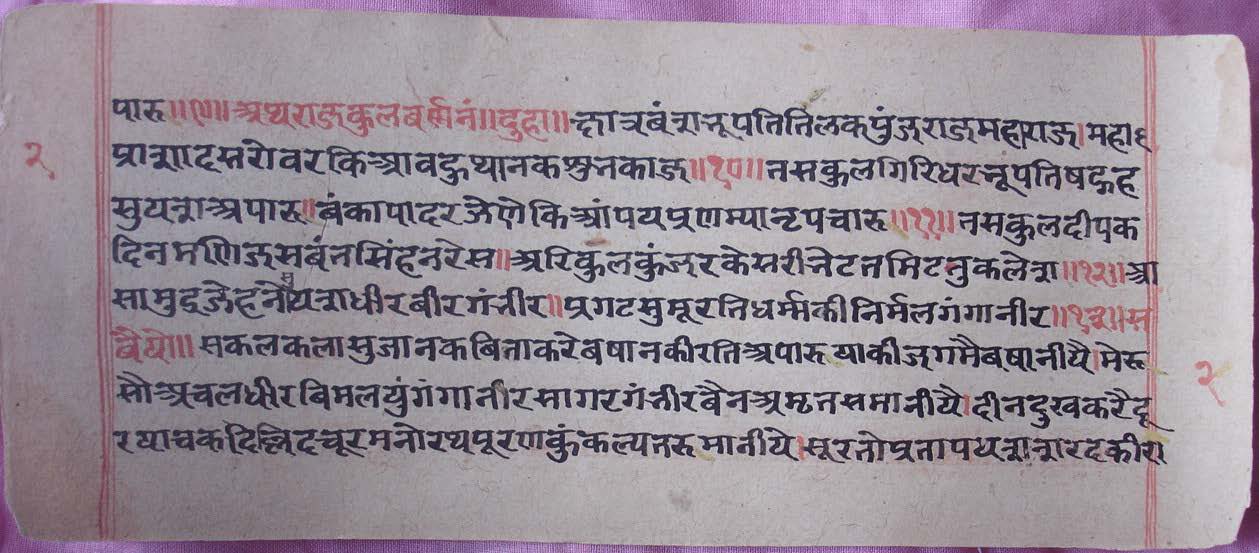 पारु ॥९॥ अथ राजकुलबर्णनं ॥ दुहा ॥ क्षात्रबंश नृपति तिलक पुंज राज महाराज । महा
प्राशाद सरोवर कि आवदु थानक शुन काज ॥१०॥ तस कुल गिरिधर नृपति षटुह
सुयश अपारु ॥ बंका पादर जेणे कि आंपय प्रणम्या नृप चारु ॥११॥ तस कुल दीपक
दिनमणि जसबंत सिंह नरेस ॥ अरि कुल कुंजर केसरी नेट त मिट तु कलेश ॥१२॥ आ
सामुद्र जेहनो यश धीर बीर गंभीर ॥ प्रगट सुमूरति धर्म्म की निर्मल गंगा नीर ॥१३॥ स
वैयो ॥ सकल कला सुजान कबिता करे बषान कीरति अपारु याकी जग मै बषानीयै । मेरू
सौ अचल धीर बिमल युं गंगा नीर सागर गंभीर बैन अमृत समानीयै । दीन दुख करै दू
र याचक दूर मनोरथ पूरण कुं कल्पतरु मानीये । सूर तो प्रताप यश शारद की
२
२